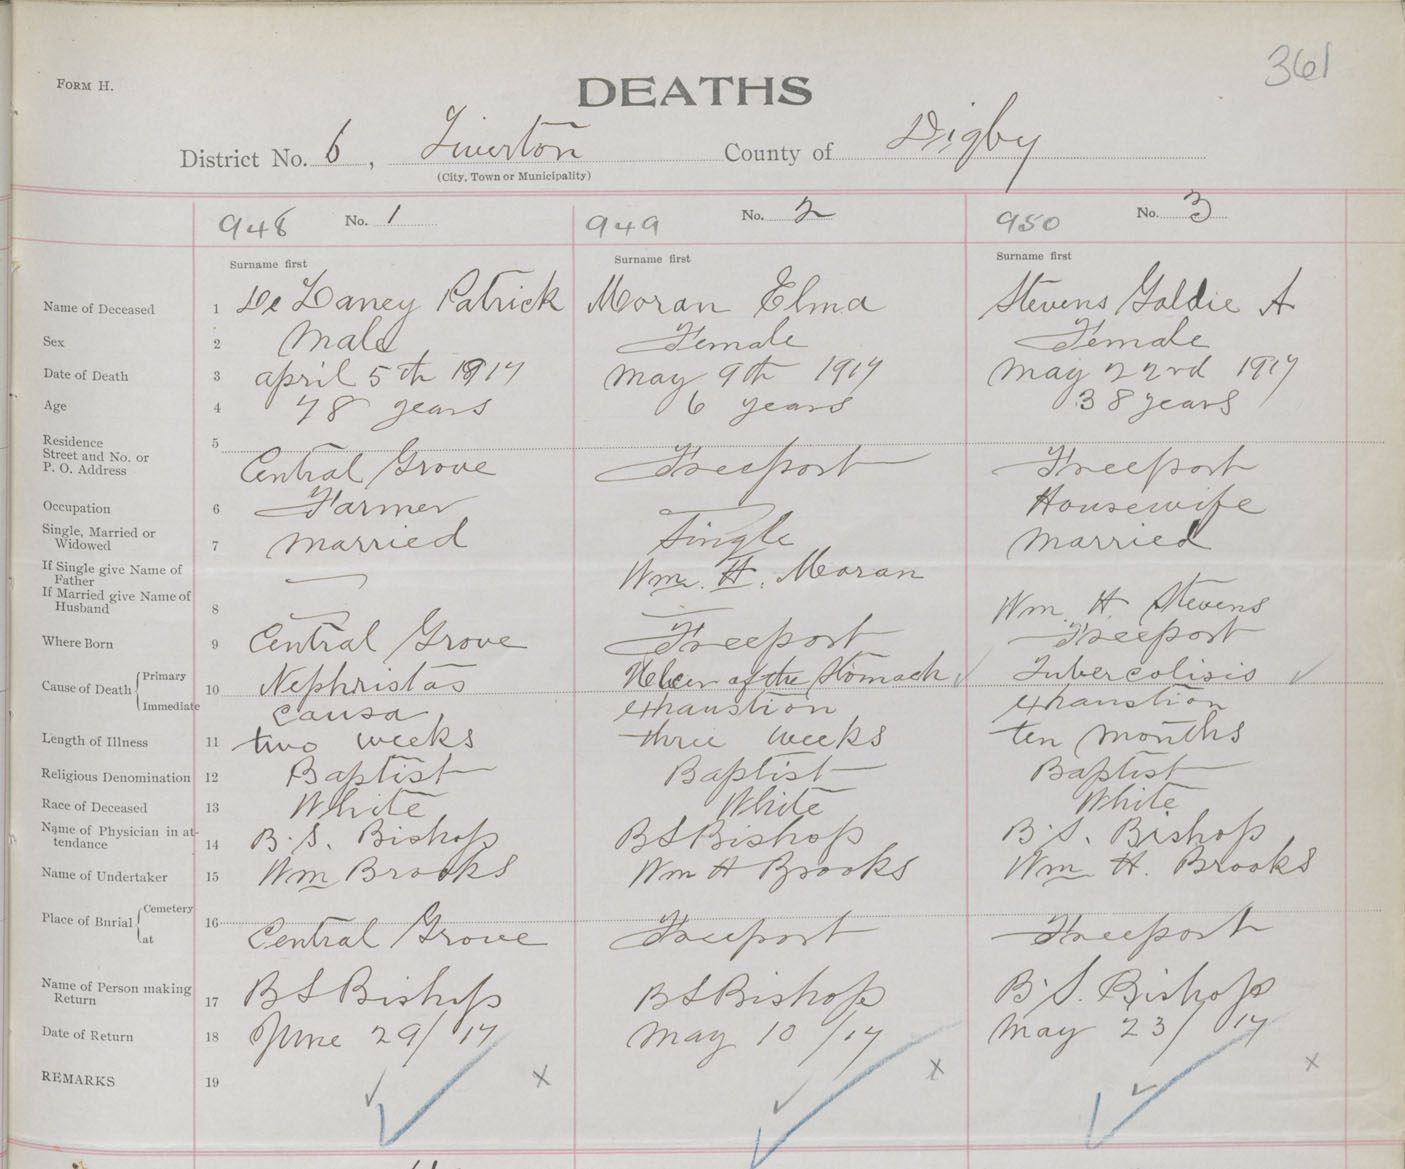 361
FORM H.
DEATHS
District No. 6, Tiverton County of Digby
(City, Town or Municipality)
948 No. 1 949 No. 2 950 No. 3
Surname first Surname first Surname first
Name of Deceased 1 De Laney Patrick Moran Elma Stevens Goldie A
Sex 2 Male Female Female
Date of Death 3 april 5th 1917 May 9th 1917 May 22nd 1917
Age 4 78 years 6 years 38 years
Residence 5
Street and No. or
P. O. Address Central Grove Freeport Freeport
Occupation 6 Farmer Housewife
Single, Married or
Widowed 7 Married Single Married
If Single give Name of
Father Wm. H. Moran
If Married give Name of
Husband 8 Wm. H Stevens
Where Born 9 Central Grove Freeport Freeport
Cause of Death Primary 10 Nephristas Ulcer of the Stomach Tubercolisis
Immediate Causa exhaustion exhaustion
Length of Illness 11 two weeks three weeks ten months
Religious Denomination 12 Baptist Baptist Baptist
Race of Deceased 13 White White White
Name of Physician in at-
tendance 14 B. S. Bishop B S Bishop B. S. Bishop
Name of Undertaker 15 Wm Brooks Wm H Brooks Wm H. Brooks
Place of Burial Cemetery 16
at Central Grove Freeport Freeport
Name of Person making
Return 17 B S Bishop B S Bishop B. S. Bishop
Date of Return 18 June 29/17 May 10/17 May 23/17
REMARKS 19 x x x